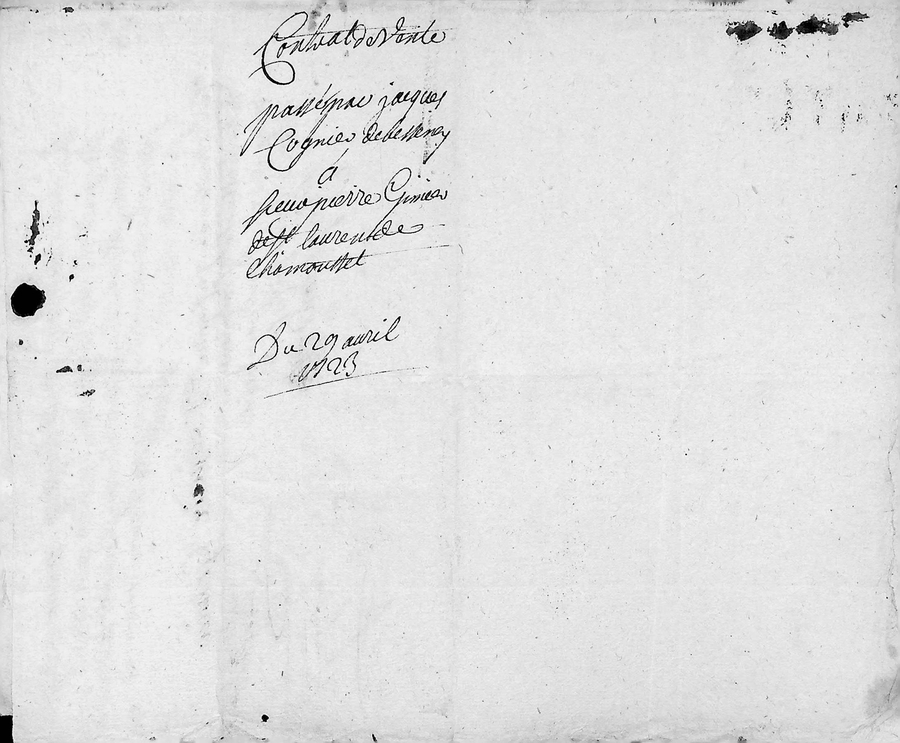 Contrat de Vente
passé par jacques
Cognier de bessenay
à
sieur pierre Gimier
de St laurent de
Chamousset
Du 29 avril
1723